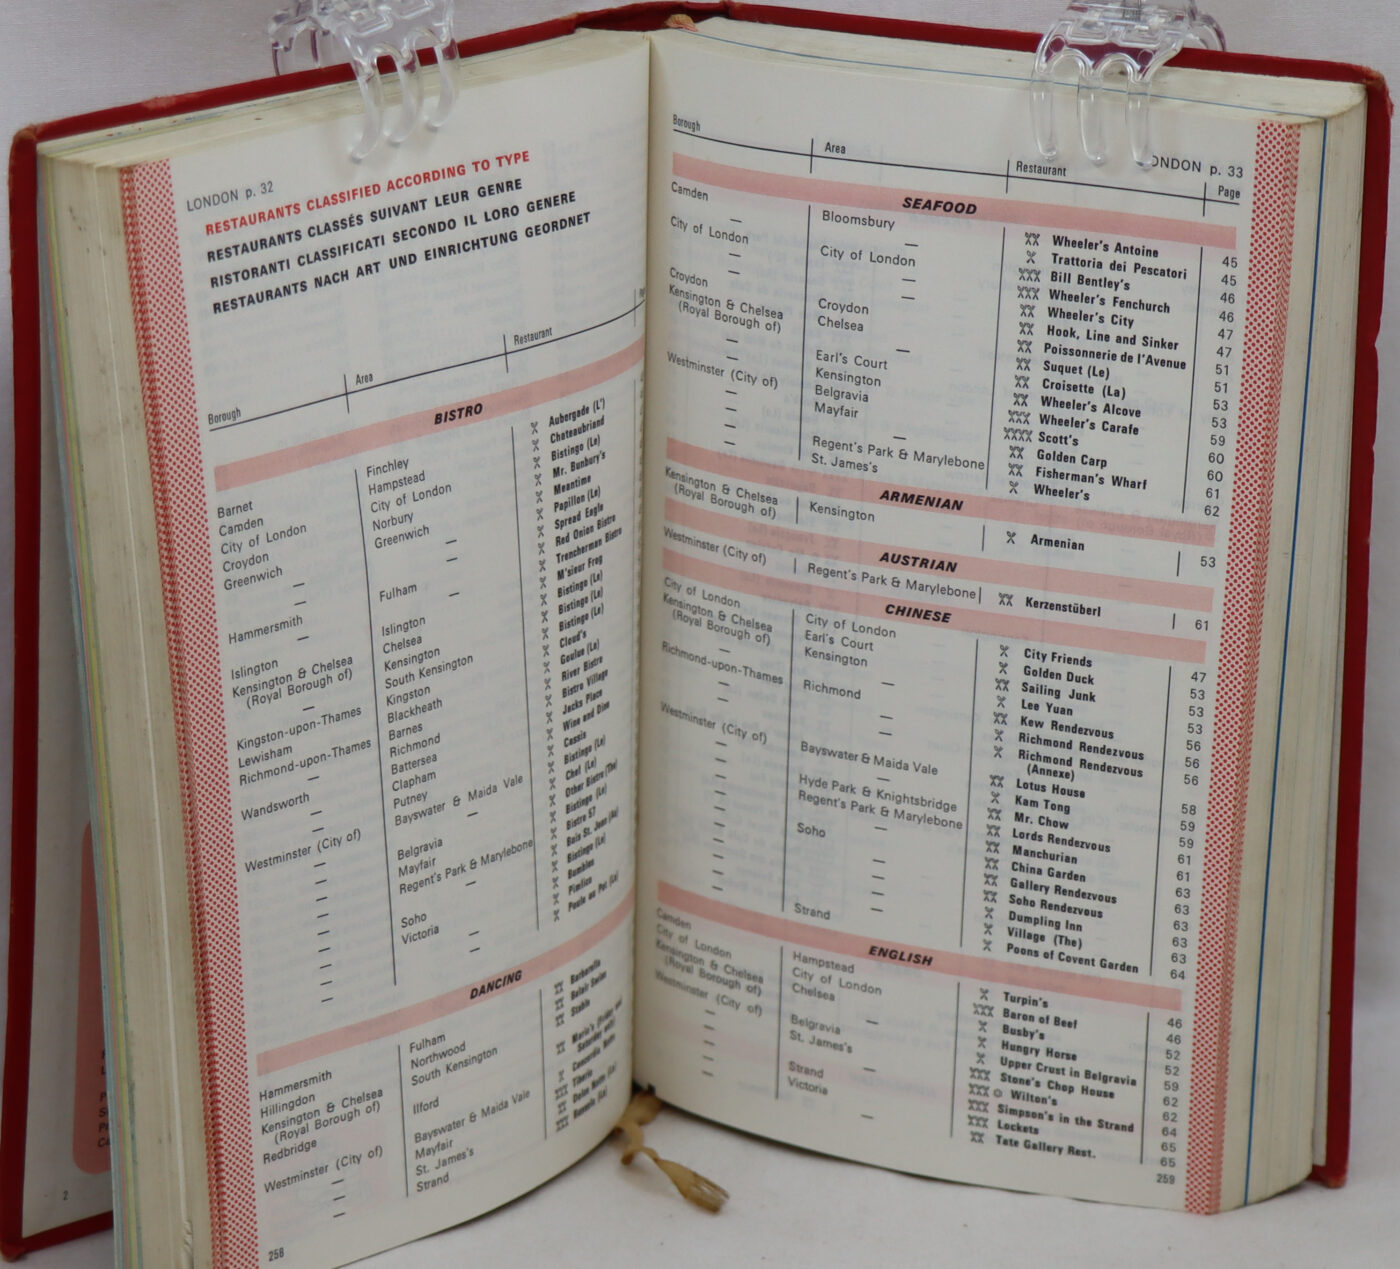 LONDON p. 32
RESTAURANTS CLASSIFIED ACCORDING TO TYPE
RESTAURANTS CLASSÉS SUIVANT LEUR GENRE
RISTORANTI CLASSIFICATI SECONDO IL LORO GENERE
RESTAURANTS NACH ART UND EINRICHTUNG GEORDNET
Borough Area Restaurant
BISTRO
Barnet Finchley Aubergade (L')
Camden Hampstead Chateaubriand
City of London City of London Bistingo (Le)
Croydon Norbury Mr. Bunbury's
Greenwich Greenwich Meantime
— — Papillon (Le)
— — Spread Eagle
Hammersmith Fulham Red Onion Bistro
— — Trencherman Bistro
Islington Islington M'sieur Frog
Kensington & Chelsea Chelsea Bistingo (Le)
(Royal Borough of) Kensington Bistingo (Le)
— South Kensington Bistingo (Le)
Kingston-upon-Thames Kingston Cloud's
Lewisham Blackheath Goulue (Le)
Richmond-upon-Thames Barnes River Bistro
— Richmond Bistro Village
Wandsworth Battersea Jacks Place
— Clapham Wine and Dine
— Putney Cassis
Westminster (City of) Bayswater & Maida Vale Bistingo (Le)
— — Chef (Le)
— Belgravia Other Bistro (The)
— Mayfair Bistingo (Le)
— Regent's Park & Marylebone Bistro 57
— — Bois St. Jean (Au)
— Soho Bistingo (Le)
— Victoria Bumbles
— — Pimlico
— — Poule au Pot (La)
DANCING
Hammersmith Fulham Barbarella
Hillingdon Northwood Belair Swiss
Kensington & Chelsea South Kensington Stable
(Royal Borough of)
Redbridge Ilford
Westminster (City of) Bayswater & Maida Vale Concordia Notte
— Mayfair Tiberio
— St. James's
— Strand
258
LONDON p. 33
Borough Area Restaurant Page
SEAFOOD
Camden Bloomsbury Wheeler's Antoine 45
— — Trattoria dei Pescatori 45
City of London City of London Bill Bentley's 46
— — Wheeler's Fenchurch 46
— — Wheeler's City 47
Croydon Croydon Hook, Line and Sinker 47
Kensington & Chelsea Chelsea Poissonnerie de l'Avenue 51
(Royal Borough of) — Suquet (Le) 51
— Earl's Court Croisette (La) 53
— Kensington Wheeler's Alcove 53
Westminster (City of) Belgravia Wheeler's Carafe 59
— Mayfair Scott's 60
— — Golden Carp 60
— Regent's Park & Marylebone Fisherman's Wharf 61
— St. James's Wheeler's 62
ARMENIAN
Kensington & Chelsea Kensington Armenian 53
(Royal Borough of)
AUSTRIAN
Westminster (City of) Regent's Park & Marylebone Kerzenstüberl 61
CHINESE
City of London City of London City Friends 47
Kensington & Chelsea Earl's Court Golden Duck 53
(Royal Borough of) Kensington Sailing Junk 53
— — Lee Yuan 53
Richmond-upon-Thames Richmond Kew Rendezvous 56
— — Richmond Rendezvous 56
— — Richmond Rendezvous 56
(Annexe)
Westminster (City of) Bayswater & Maida Vale Lotus House 58
— — Kam Tong 59
— Hyde Park & Knightsbridge Mr. Chow 59
— Regent's Park & Marylebone Lords Rendezvous 61
— — Manchurian 61
— Soho China Garden 63
— — Gallery Rendezvous 63
— — Soho Rendezvous 63
— — Dumpling Inn 63
— — Village (The) 63
— Strand Poons of Covent Garden 64
ENGLISH
Camden Hampstead Turpin's 46
City of London City of London Baron of Beef 46
Kensington & Chelsea Chelsea Busby's 52
(Royal Borough of) — Hungry Horse 52
Westminster (City of) Belgravia Upper Crust in Belgravia 59
— St. James's Stone's Chop House 62
— — Wilton's 62
— Strand Simpson's in the Strand 64
— Victoria Lockets 65
— — Tate Gallery Rest. 65
259
2